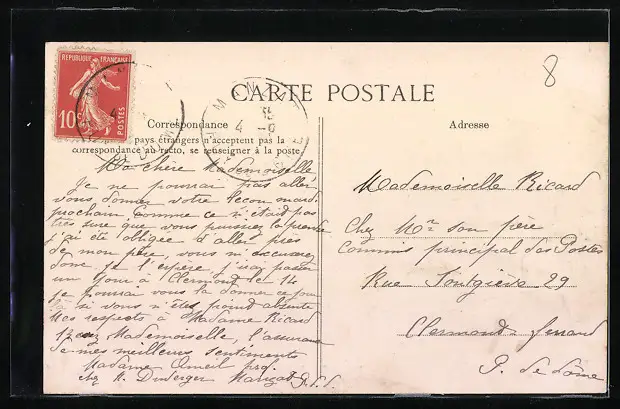 8
REPUBLIQUE FRANÇAISE
10c
POSTES
CARTE POSTALE
Correspondance
pays étrangers n'acceptent pas la
correspondance au recto, se renseigner à la poste
Ma chère Mademoiselle
Je ne pourrai pas aller
vous donner votre leçon mardi
prochain comme ce n'était pas
très sûre que vous pourriez la prendre
j'ai été obligée d'aller près
de mon père, vous m'excuserez
donc. Je l'espère, j'irai passer
un jour à Clermont le 14
je pourrai vous la donner ce jour
là si vous n'êtes point absente
Mes respects à Madame Ricard
Mademoiselle, l'assurance
de mes meilleurs sentiments
Madame prof.
chez M. Manzat P.d.D.
Adresse
Mademoiselle Ricard
Chez Mr son père
Commis principal des Postes
Rue Fontgiève 29
Clermont-Ferrand
P. de Dôme